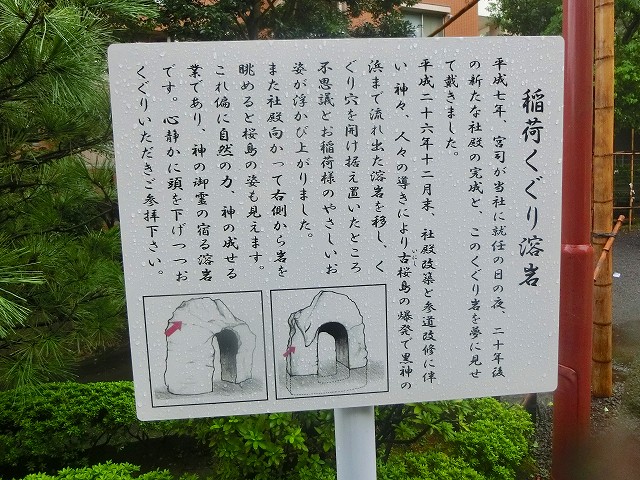 稲荷くぐり溶岩
平成七年、宮司が当社に就任の日の夜、二十年後
の新たな社殿の完成と、このくぐり岩を夢に見せ
て戴きました。
平成二十六年十二月末、社殿改築と参道改修に伴
い、神々、人々の導きにより古桜島の爆発で黒神の
いにし
浜まで流れ出た溶岩を移し、く
ぐり穴を開け据え置いたところ
不思議とお稲荷様のやさしいお
姿が浮かび上がりました。
また社殿向かって右側から岩を
眺めると桜島の姿も見えます。
これ偏に自然の力、神の成せる
業であり、神の御霊の宿る溶岩
です。心静かに頭を下げつつお
くぐりいただきご参拝下さい。